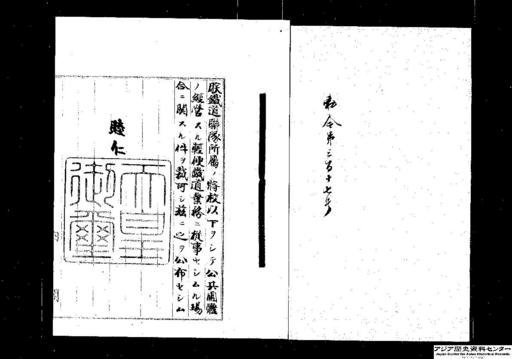 勅令第三百十七号
朕鐵道聯隊所屬ノ將校以下ヲシテ公共團體
ノ經營スル輕便鐵道業務ニ從事セシムル場
合ニ關スル件ヲ裁可シ茲ニ之ヲ公布セシム
睦仁
天皇御璽
アジア歴史資料センター
Japan Center for Asian Historical Records